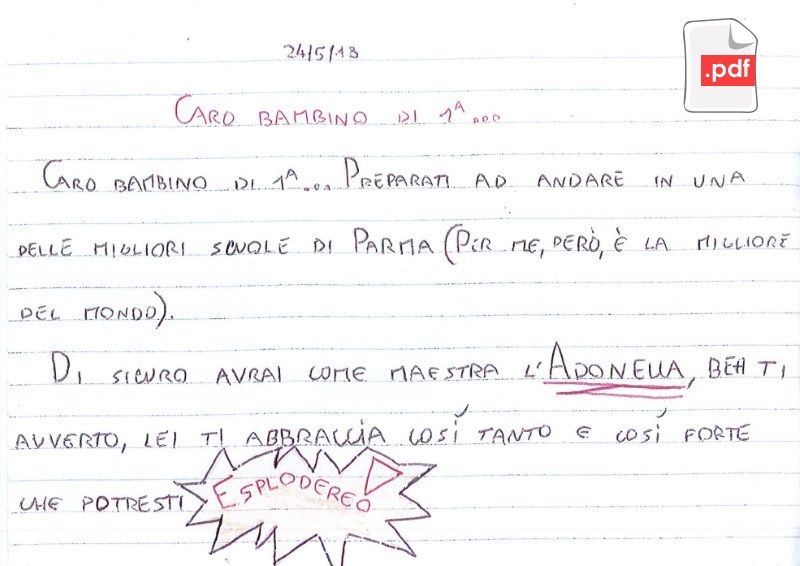 .pdf
24/5/13
CARO BAMBINO DI 1ᴬ...
CARO BAMBINO DI 1ᴬ... PREPARATI AD ANDARE IN UNA
DELLE MIGLIORI SCUOLE DI PARMA (PER ME, PERÒ, È LA MIGLIORE
DEL MONDO).
DI SICURO AVRAI COME MAESTRA L'ADONELLA, BEH TI
AVVERTO, LEI TI ABBRACCIA COSÍ TANTO E COSÍ FORTE
CHE POTRESTI ESPLODERE!